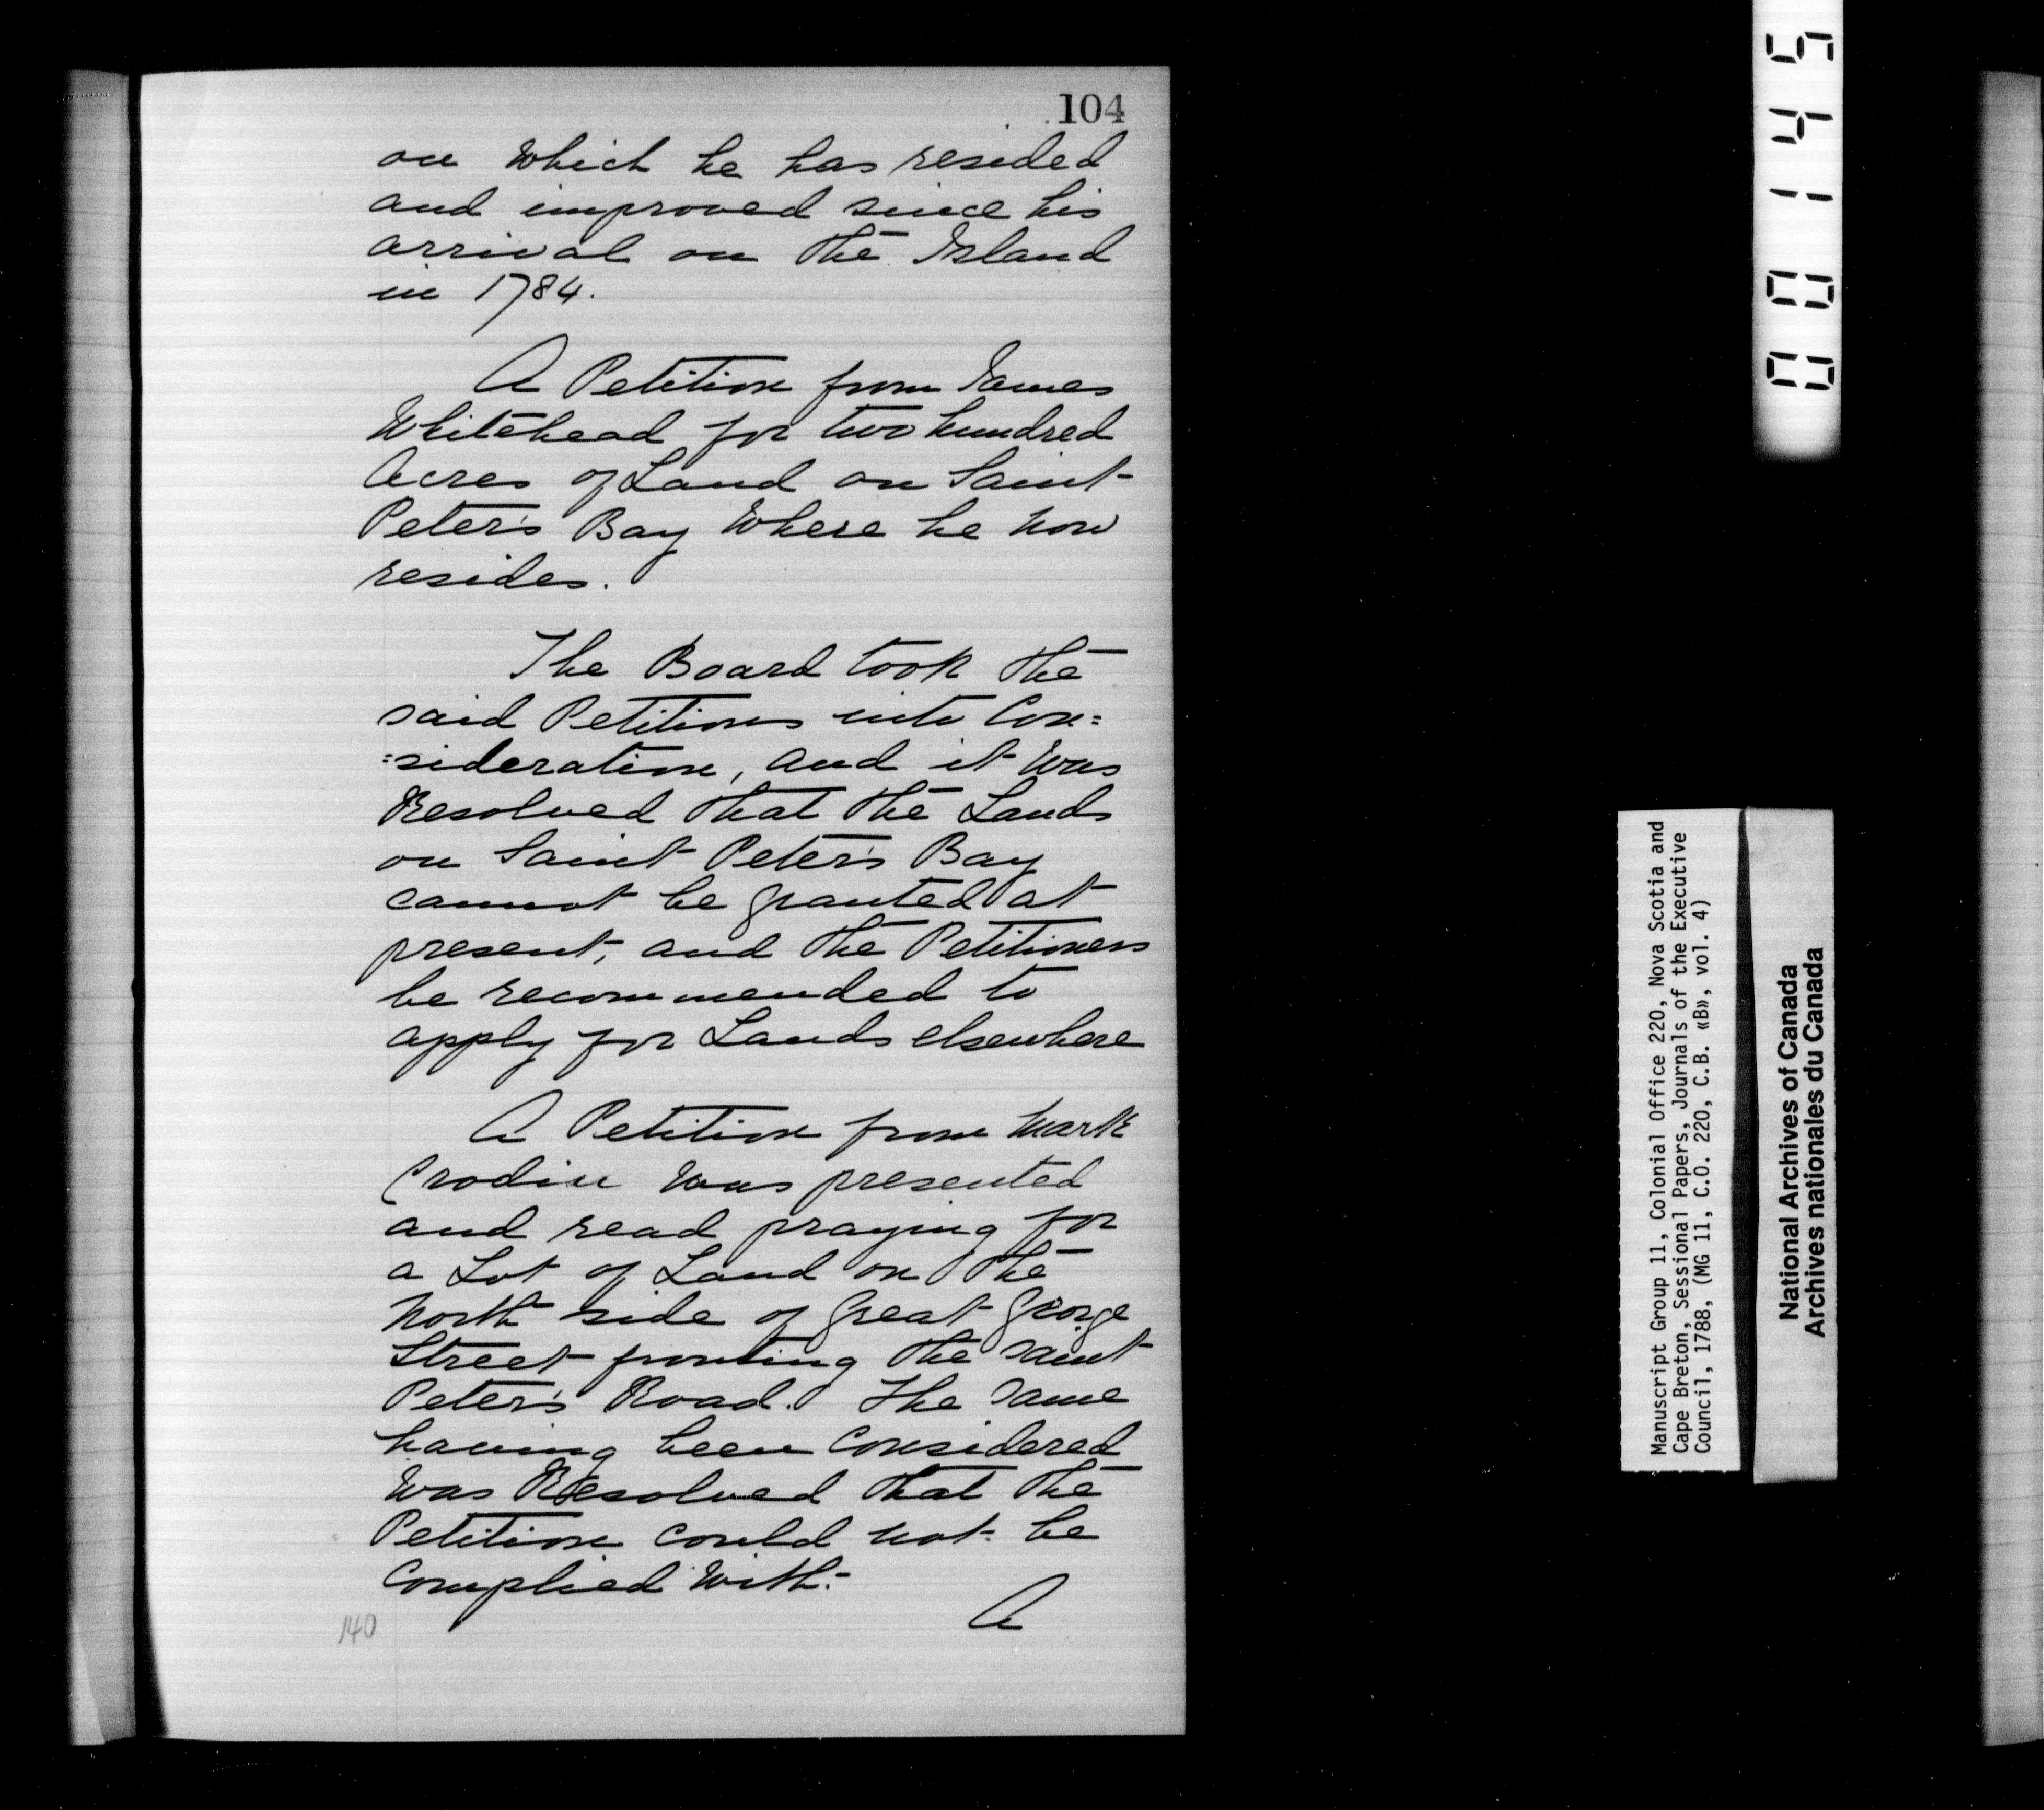 104
on Which he has resided
and improved since his
arrival on the Island
in 1784.
A Petition from James
Whitehead for two hundred
Acres of Land on Saint
Peter's Bay Where he now
resides.
The Board took the
said Petitions into Con=
=sideration, and it Was
Resolved that the Lands
on Saint Peter's Bay
cannot be granted at
present, and the Petitioners
be recommended to
apply for Lands elsewhere
A Petition from Mark
Crodin Was presented
and read praying for
a Lot of Land on the
North side of Great George
Street fronting the Saint
Peter's Road. The Same
having been Considered
Was Resolved that the
Petition Could not be
Complied With:-
A
140
00145
Manuscript Group 11, Colonial Office 220, Nova Scotia and
Cape Breton, Sessional Papers, Journals of the Executive
Council, 1788, (MG 11, C.O. 220, C.B. «B», vol. 4)
National Archives of Canada
Archives nationales du Canada